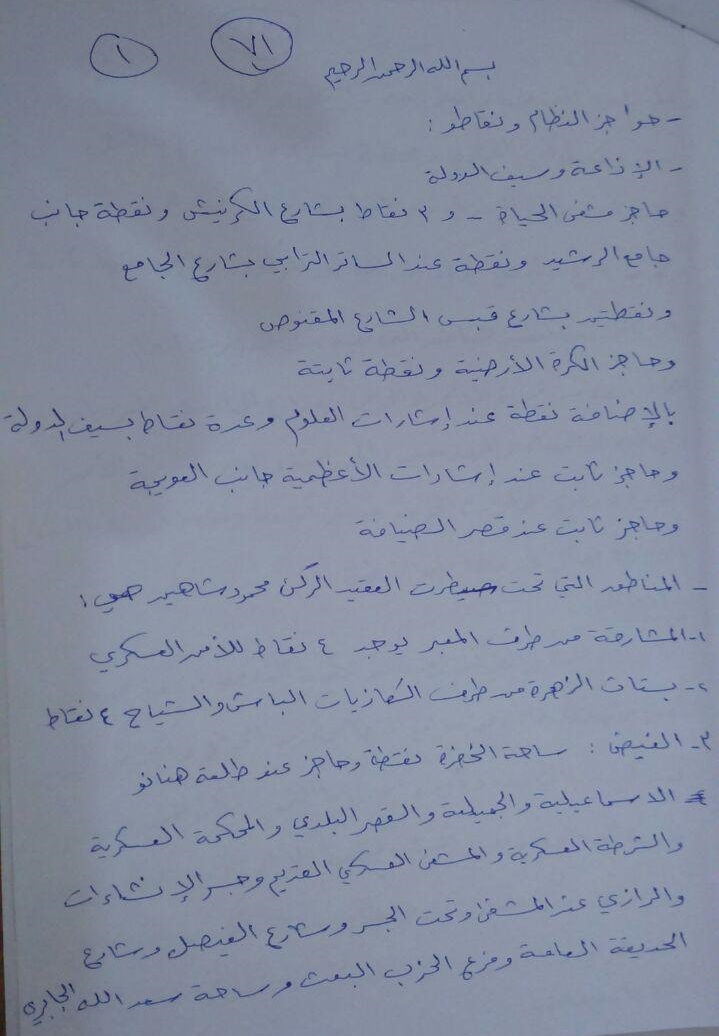 ٧١ ١
بسم الله الرحمن الرحيم
- حواجز النظام ونقاطو :
- الإذاعة وسيف الدولة
حاجز مشفى الحياة - و ٣ نقاط بشارع الكرنيش ونقطة جانب
جامع الرشيد ونقطة عند الساتر الترابي بشارع الجامع
ونقطتين بشارع قبس الشارع المقنوص
وحاجز الكرة الأرضية ونقطة ثابتة
بالإضافة نقطة عند إشارات العلوم وعدة نقاط بسيف الدولة
وحاجز ثابت عند إشارات الأعظمية جانب العويجة
وحاجز ثابت عند قصر الضيافة
- المناطق التي تحت سيطرت العقيد الركن محمود شاهين هي :
١- المشارقة من طرف المعبر يوجد ٤ نقاط للأمن العسكري
٢- بستان الزهرة من طرف الكازيات الباش والسياج ٤ نقاط
٣- الفيض : ساحة الخضرة نقطة وحاجز عند طلعة هنانو
الاسماعيلية والجميلية والقصر البلدي والمحكمة العسكرية
والشرطة العسكرية والمشفى العسكي القديم وجسر الإنشاءات
والرازي عند المشفى وتحت الجسر وشارع الفيصل وشارع
الحديقة العامة وفرع الحزب البعث وساحة سعد الله الجابري